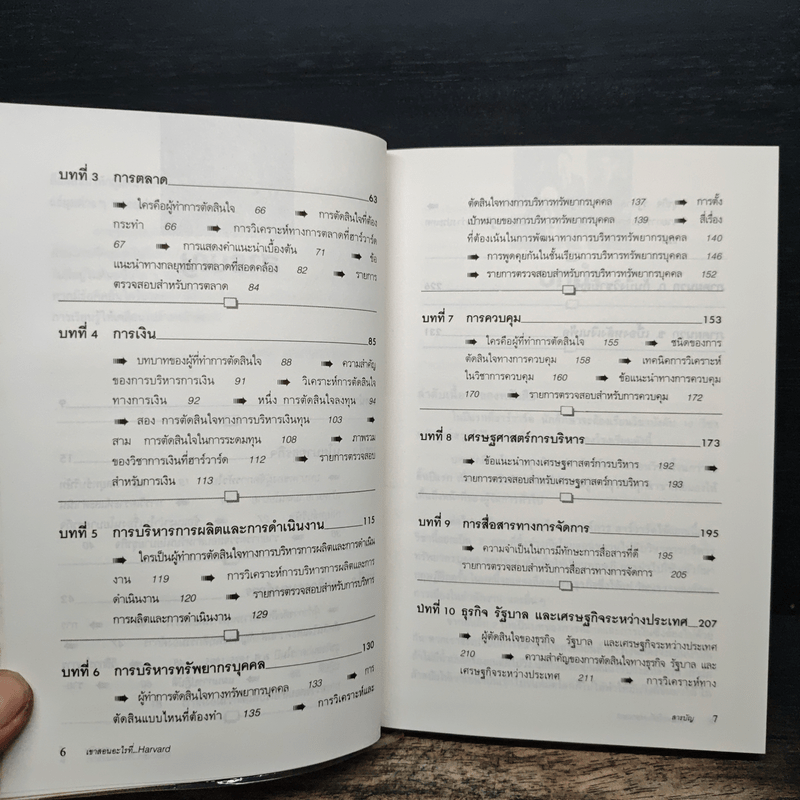 บทที่ 3 การตลาด 63
➠ ใครคือผู้ทำการตัดสินใจ 66 ➠ การตัดสินใจที่ต้อง
กระทำ 66 ➠ การวิเคราะห์ทางการตลาดที่ฮาร์วาร์ด
67 ➠ การแสดงคำแนะนำเบื้องต้น 71 ➠ ข้อ
แนะนำทางกลยุทธ์การตลาดที่สอดคล้อง 82 ➠ รายการ
ตรวจสอบสำหรับการตลาด 84
บทที่ 4 การเงิน 85
➠ บทบาทของผู้ที่ทำการตัดสินใจ 88 ➠ ความสำคัญ
ของการบริหารการเงิน 91 ➠ วิเคราะห์การตัดสินใจ
ทางการเงิน 92 ➠ หนึ่ง การตัดสินใจลงทุน 94
➠ สอง การตัดสินใจทางการบริหารเงินทุน 103 ➠
สาม การตัดสินใจในการระดมทุน 108 ➠ ภาพรวม
ของวิชาการเงินที่ฮาร์วาร์ด 112 ➠ รายการตรวจสอบ
สำหรับการเงิน 113
บทที่ 5 การบริหารการผลิตและการดำเนินงาน 115
➠ ใครเป็นผู้ทำการตัดสินใจทางการบริหารการผลิตและการดำเนิน
งาน 119 ➠ การวิเคราะห์การบริหารการผลิตและการ
ดำเนินงาน 120 ➠ รายการตรวจสอบสำหรับการบริหาร
การผลิตและการดำเนินงาน 129
บทที่ 6 การบริหารทรัพยากรบุคคล 130
➠ ผู้ทำการตัดสินใจทางทรัพยากรบุคคล 133 ➠ การ
ตัดสินแบบไหนที่ต้องทำ 135 ➠ การวิเคราะห์และ
6 เขาสอนอะไรที่...Harvard
ตัดสินใจทางการบริหารทรัพยากรบุคคล 137 ➠ การตั้ง
เป้าหมายของการบริหารทรัพยากรบุคคล 139 ➠ สี่เรื่อง
ที่ต้องเน้นในการพัฒนาทางการบริหารทรัพยากรบุคคล 140
➠ การพูดคุยกันในชั้นเรียนการบริหารทรัพยากรบุคคล 146
➠ รายการตรวจสอบสำหรับการบริหารทรัพยากรบุคคล 152
บทที่ 7 การควบคุม 153
➠ ใครคือผู้ทำการตัดสินใจ 155 ➠ ชนิดของการ
ตัดสินใจทางการควบคุม 158 ➠ เทคนิคการวิเคราะห์
ในวิชาการควบคุม 160 ➠ ข้อแนะนำทางการควบคุม
170 ➠ รายการตรวจสอบสำหรับการควบคุม 172
บทที่ 8 เศรษฐศาสตร์การบริหาร 173
➠ ข้อแนะนำทางเศรษฐศาสตร์การบริหาร 192 ➠
รายการตรวจสอบสำหรับเศรษฐศาสตร์การบริหาร 193
บทที่ 9 การสื่อสารทางการจัดการ 195
➠ ความจำเป็นในการมีทักษะการสื่อสารที่ดี 195 ➠
รายการตรวจสอบสำหรับการสื่อสารทางการจัดการ 205
บทที่ 10 ธุรกิจ รัฐบาล และเศรษฐกิจระหว่างประเทศ 207
➠ ผู้ตัดสินใจของธุรกิจ รัฐบาล และเศรษฐกิจระหว่างประเทศ
210 ➠ ความสำคัญของการตัดสินใจทางธุรกิจ รัฐบาล และ
เศรษฐกิจระหว่างประเทศ 211 ➠ การวิเคราะห์ทาง
สารบัญ 7